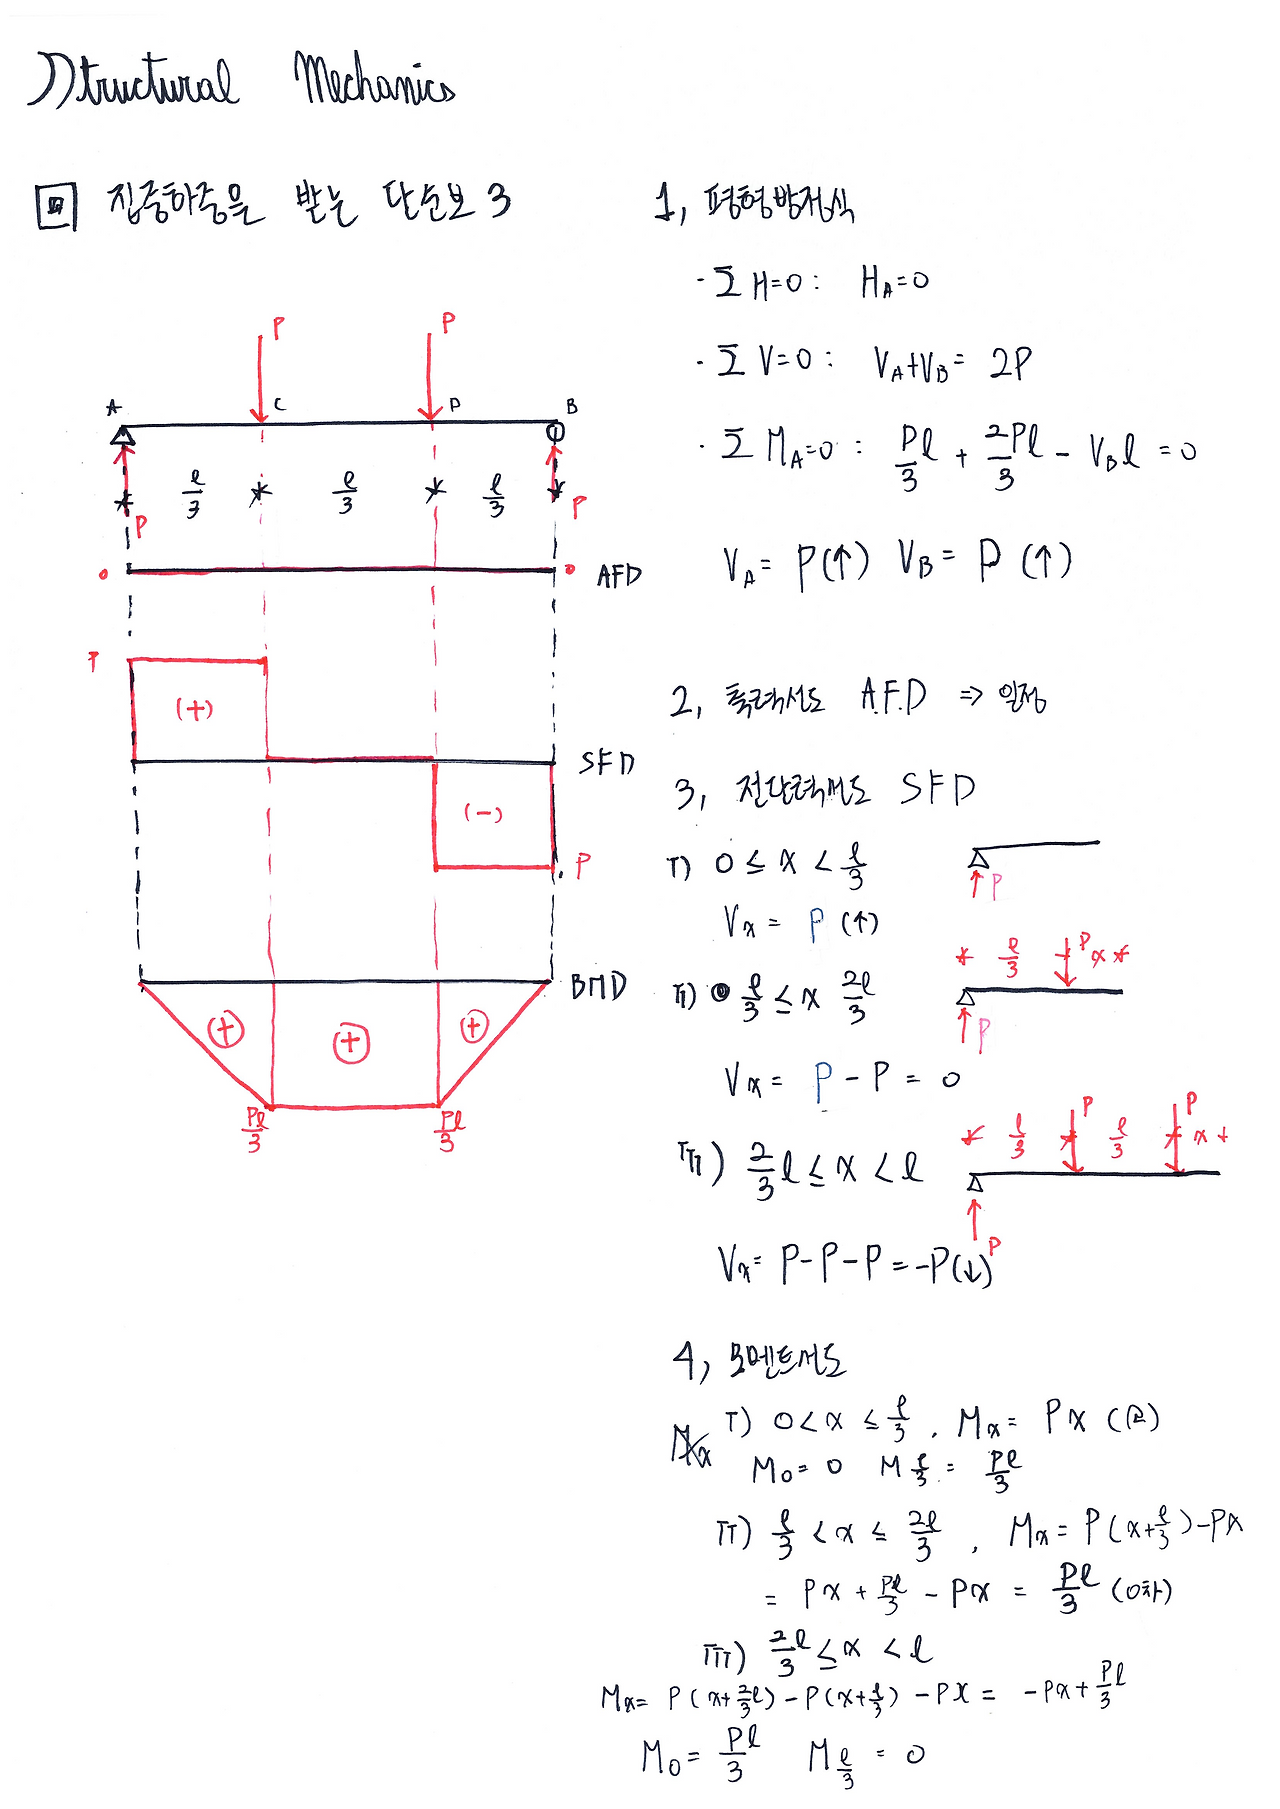 Structural Mechanics
집중하중을 받는 단순보 3
P P
A C D B
l/3 l/3 l/3
P P
0 0 AFD
P (+) SFD
(-) P
BMD
(+) (+) (+)
Pl/3 Pl/3
1, 평형방정식
· Σ H=0 : H_A=0
· Σ V=0 : V_A+V_B= 2P
· Σ M_A=0 : Pl/3 + 2Pl/3 - V_B l = 0
V_A= P(↑) V_B= P (↑)
2, 축력선도 A.F.D ⇒ 일정
3, 전단력선도 SFD
I) 0 ≤ x < l/3
P
V_x = P (↑)
l/3 P x
II) l/3 ≤ x 2l/3
P
V_x = P - P = 0
l/3 P l/3 P x
III) 2/3 l ≤ x < l
P
V_x= P-P-P = -P(↓)
4, 모멘트선도
I) 0 < x ≤ l/3 , M_x = Px
M_0 = 0 M_l/3 = Pl/3
II) l/3 < x ≤ 2l/3 , M_x = P(x+l/3)-Px
= Px + Pl/3 - Px = Pl/3 (0차)
III) 2l/3 ≤ x < l
M_x= P(x+2/3l) - P(x+l/3) - Px = -Px + Pl/3
M_0 = Pl/3 M_l/3 = 0